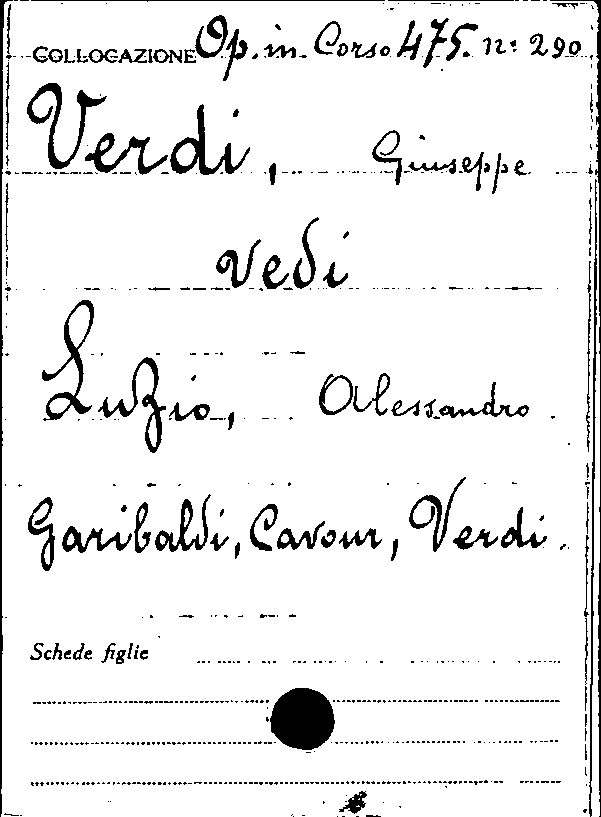 COLLOCAZIONE Op. in Corso 475. n: 290
Verdi, Giuseppe
vedi
Luzio, Alessandro.
Garibaldi, Cavour, Verdi.
Schede figlie